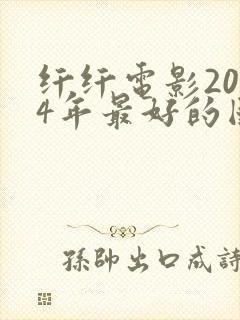 纤纤电影20
4年最好的
孫帥出口成詩